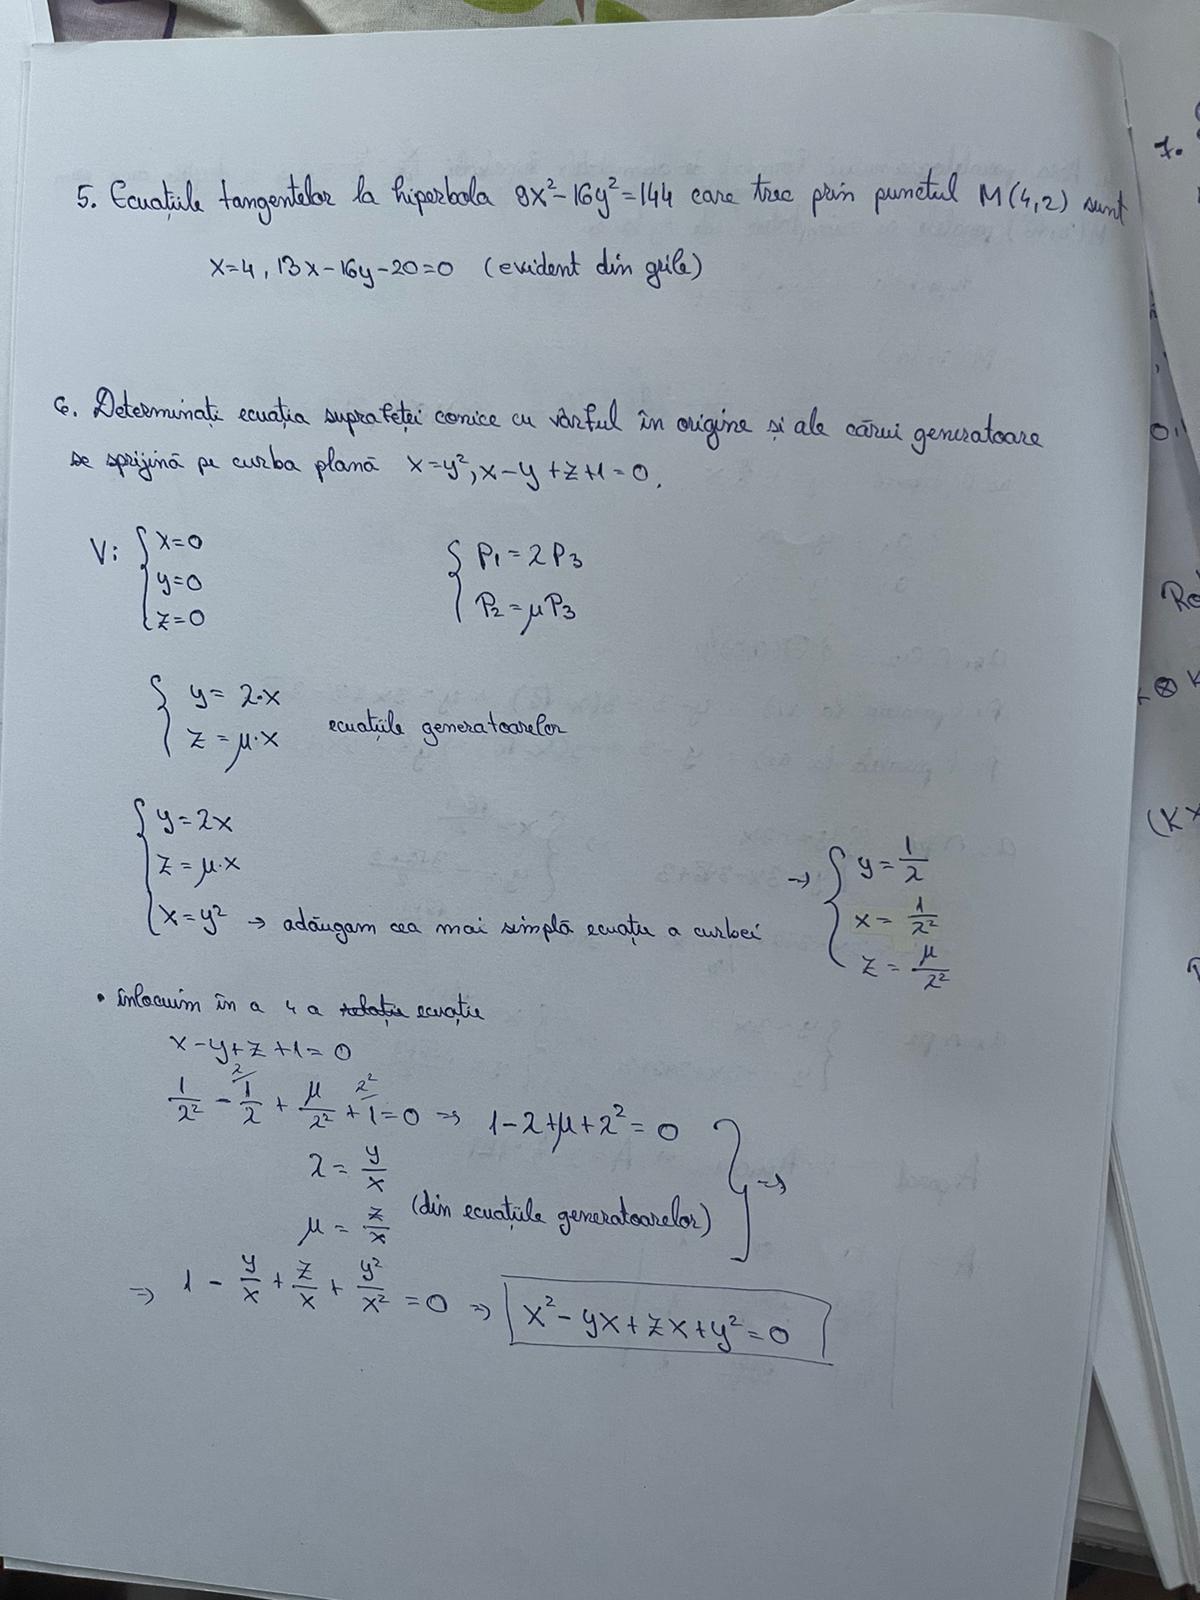 5. Ecuațiile tangentelor la hiperbola 9x² - 16y² = 144 care trec prin punctul M(4,2) sunt
x=4, 13x - 16y - 20 = 0 (evident din grile)
6. Determinați ecuația suprafeței conice cu vârful în origine și ale cărui generatoare
se sprijină pe curba plană x = y², x - y + z + 1 = 0.
V: { x=0
y=0
z=0
{ P₁ = λP₃
P₂ = μP₃
{ y = λ·x
z = μ·x ecuațiile generatoarelor
{ y = λx
z = μ·x
x = y² → adăugam cea mai simplă ecuație a curbei
→ { y = 1/λ
x = 1/λ²
z = μ/λ²
• înlocuim în a 4 a relație ecuație
x - y + z + 1 = 0
1/λ² - λ/ 1/λ + μ/λ² + λ²/ 1 = 0 => 1 - λ + μ + λ² = 0
λ = y/x
μ = z/x (din ecuațiile generatoarelor) } =>
=> 1 - y/x + z/x + y²/x² = 0 => x² - yx + zx + y² = 0
7.